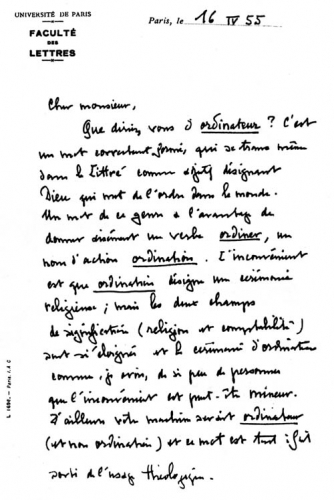 UNIVERSITÉ DE PARIS
FACULTÉ
DES
LETTRES
Paris, le 16 IV 55
Cher monsieur,
Que diriez vous d'ordinateur ? C'est
un mot correctement formé, qui se trouve même
dans le Littré comme adjectif désignant
Dieu qui met de l'ordre dans le monde.
Un mot de ce genre a l'avantage de
donner aisément un verbe ordiner, un
nom d'action ordination. L'inconvénient
est que ordination désigne une cérémonie
religieuse ; mais les deux champs
de signification (religion et comptabilité)
sont si éloignés et la cérémonie d'ordination
connue, je crois, de si peu de personnes
que l'inconvénient est peut-être mineur.
D'ailleurs votre machine serait ordinateur
(et non ordination) et ce mot est tout à fait
sorti de l'usage théologique.